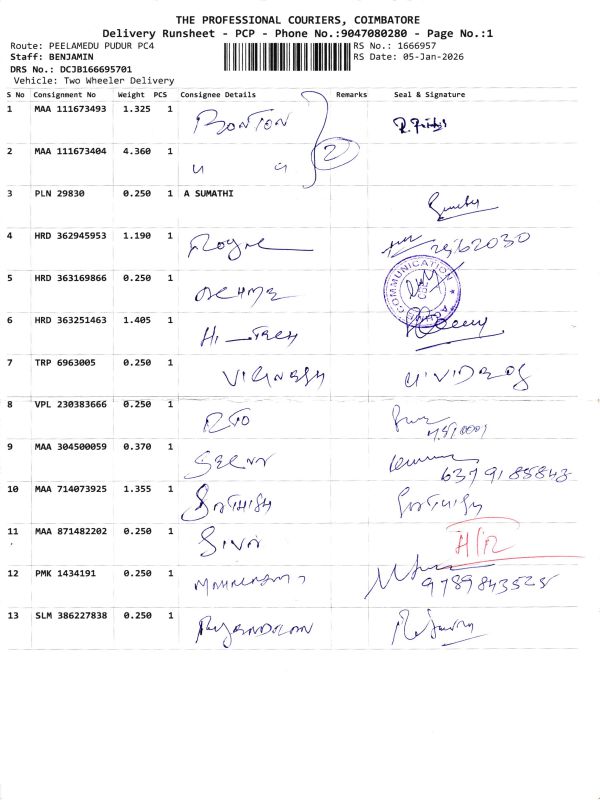 THE PROFESSIONAL COURIERS, COIMBATORE
Delivery Runsheet - PCP - Phone No.:9047080280 - Page No.:1
Route: PEELAMEDU PUDUR PC4 RS No.: 1666957
Staff: BENJAMIN RS Date: 05-Jan-2026
DRS No.: DCJB166695701
Vehicle: Two Wheeler Delivery
S No Consignment No Weight PCS Consignee Details Remarks Seal & Signature
1 MAA 111673493 1.325 1 BONTON
2 MAA 111673404 4.360 1 " " 2
3 PLN 29830 0.250 1 A SUMATHI
4 HRD 362945953 1.190 1
5 HRD 363169866 0.250 1
COMMUNICATION
CBE
6 HRD 363251463 1.405 1 HI-TECH
7 TRP 6963005 0.250 1 VIGNESH
8 VPL 230383666 0.250 1 RTO
9 MAA 304500059 0.370 1 6379185843
10 MAA 714073925 1.355 1 SATHISH
11 MAA 871482202 0.250 1 SIVA
12 PMK 1434191 0.250 1 9789843525
13 SLM 386227838 0.250 1